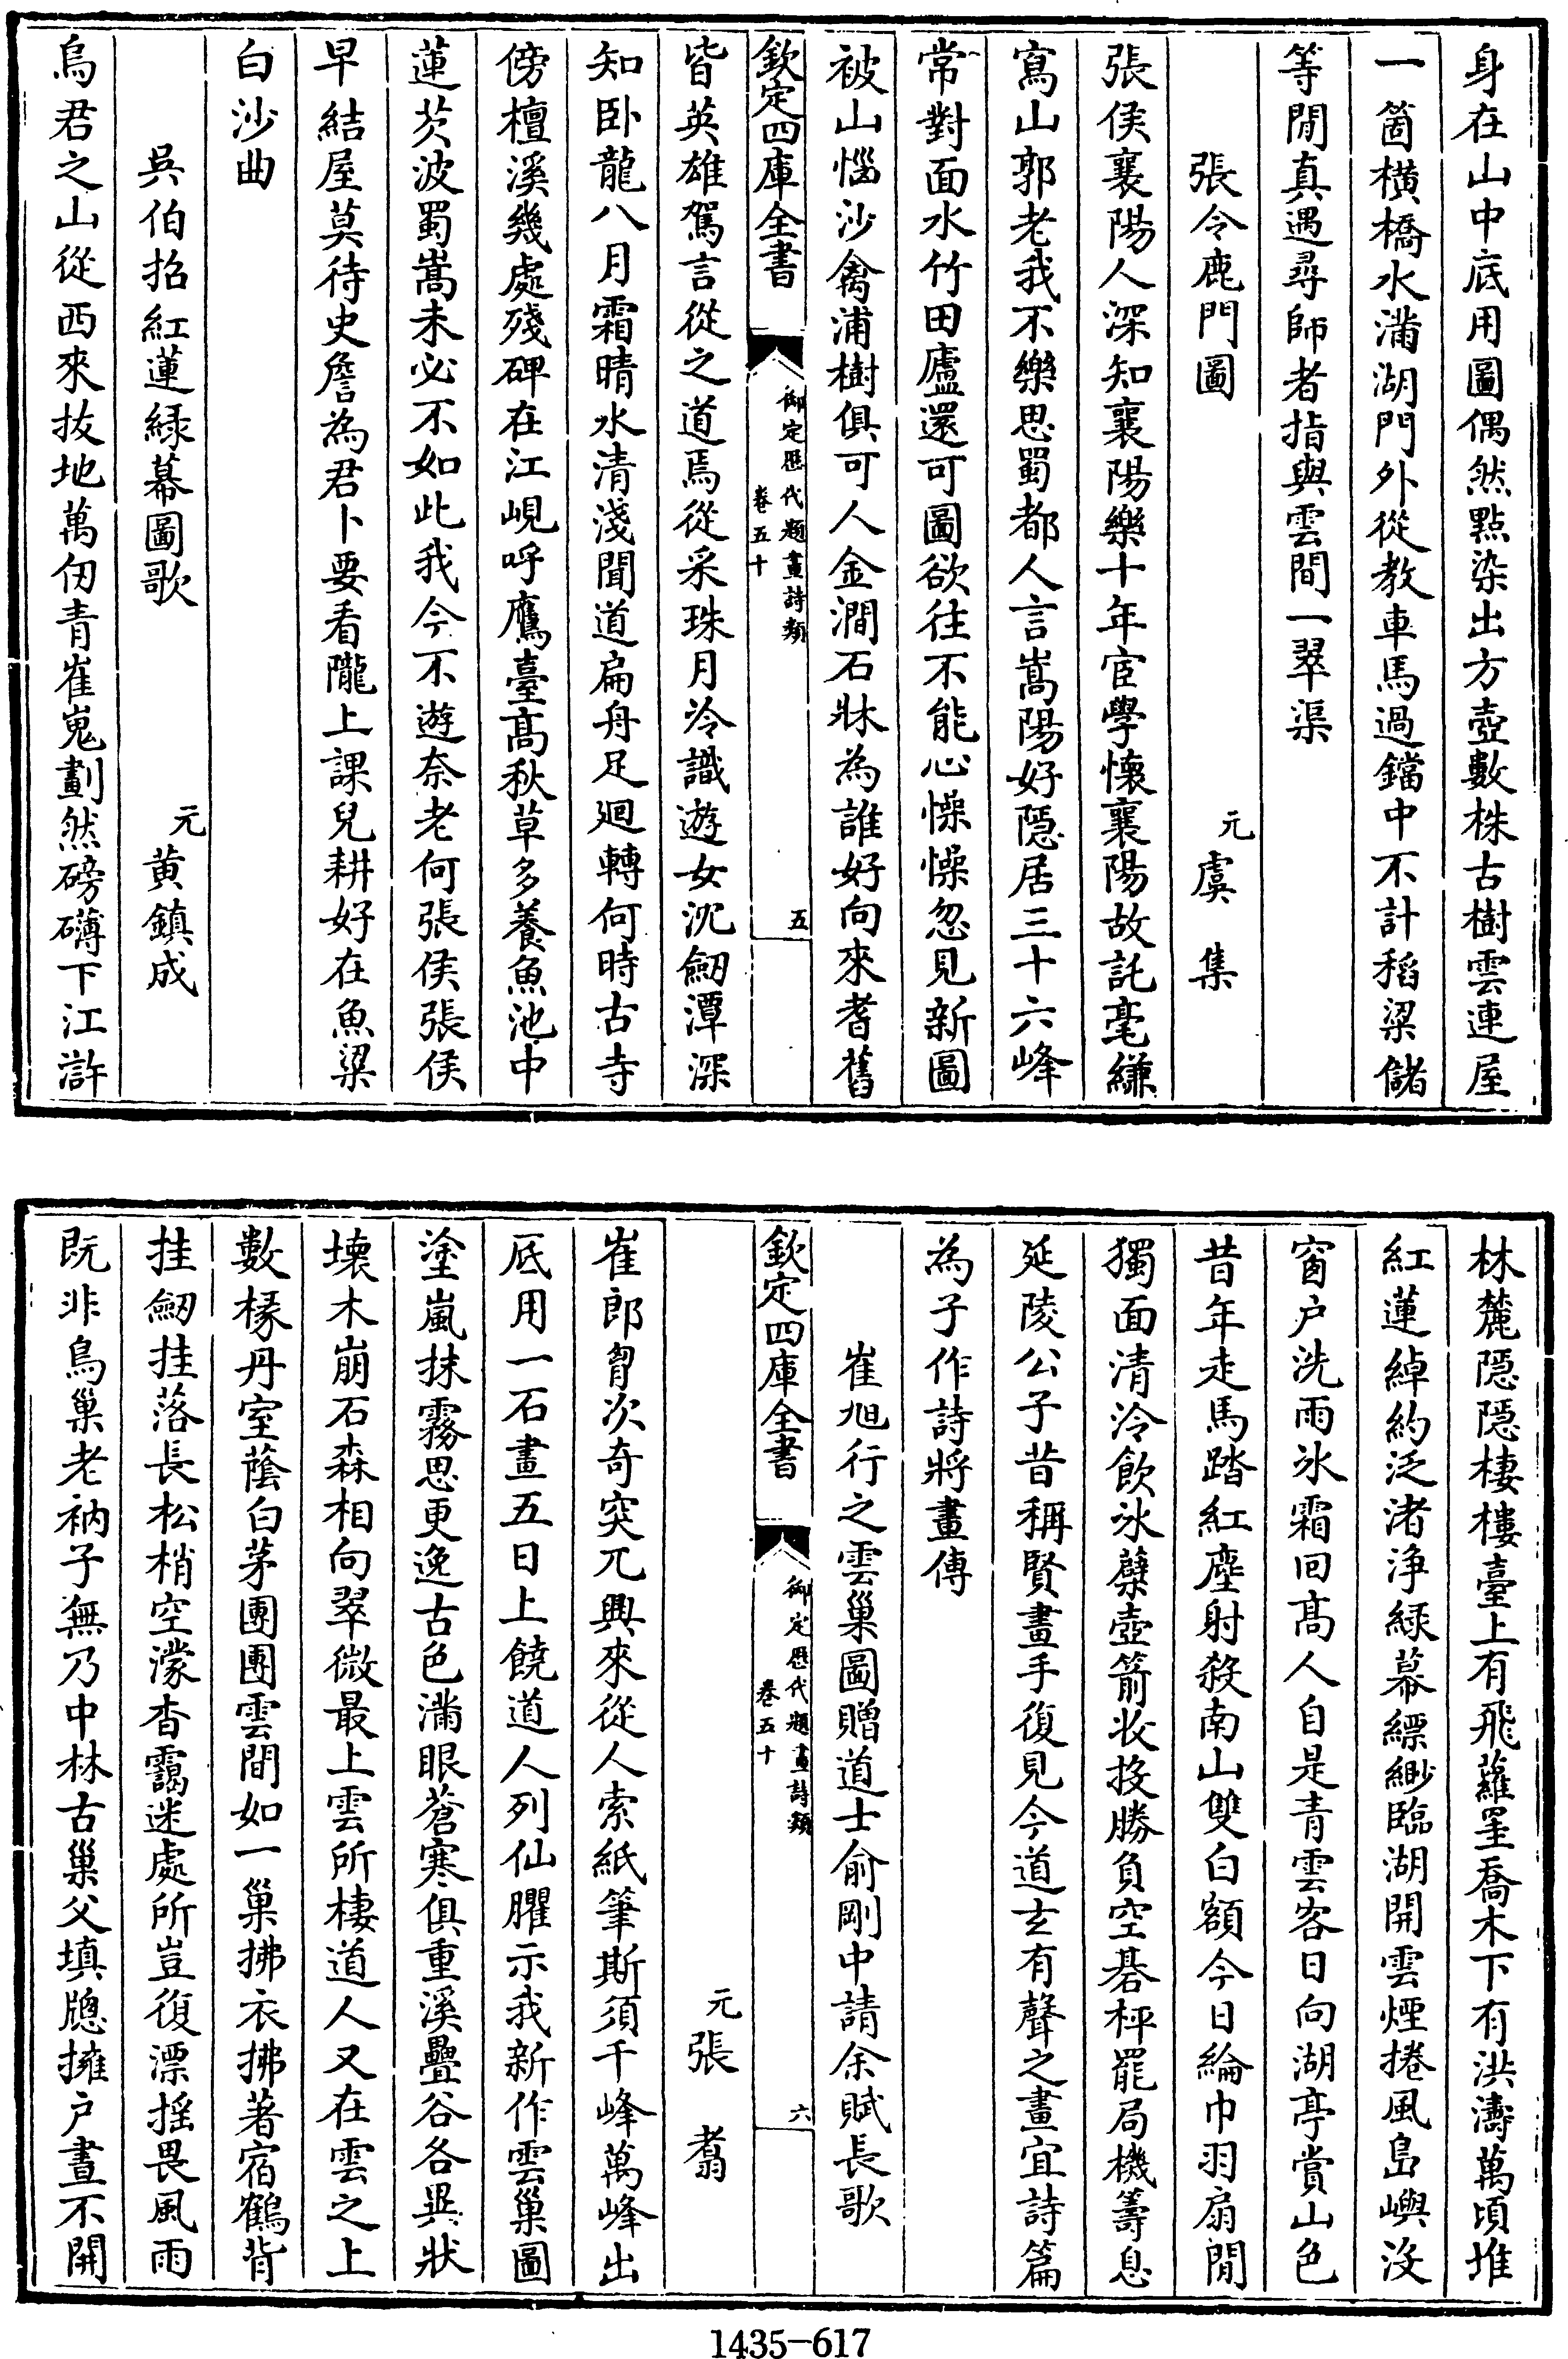 身在山中底用圖偶然點染出方壺數株古樹雲連屋
一箇橫橋水滿湖門外從教車馬過鐺中不計稻粱儲
等閒真遇尋師者指與雲間一翠渠
張令鹿門圖
元虞集
張侯襄陽人深知襄陽樂十年宦學懷襄陽故託毫縑
寫山郭老我不樂思蜀都人言嵩陽好隱居三十六峰
常對面水竹田廬還可圖欲往不能心懆懆忽見新圖
被山惱沙禽浦樹俱可人金澗石牀為誰好向來耆舊
欽定四庫全書
御定歷代題畫詩類
卷五十
五
皆英雄駕言從之道焉從采珠月冷識遊女沈劒潭深
知卧龍八月霜晴水清淺聞道扁舟足廻轉何時古寺
傍檀溪幾處殘碑在江峴呼鷹臺高秋草多養魚池中
蓮芡波蜀嵩未必不如此我今不遊奈老何張侯張侯
早結屋莫待史詹為君卜要看隴上課兒耕好在魚梁
白沙曲
吳伯招紅蓮緑幕圖歌
元黄鎮成
烏君之山從西來拔地萬仞青崔嵬劃然磅礴下江滸
林麓隱隱棲樓臺上有飛蘿罣喬木下有洪濤萬頃堆
紅蓮綽約泛渚淨緑幕縹緲臨湖開雲煙捲風島嶼沒
窗户洗雨氷霜回髙人自是青雲客日向湖亭賞山色
昔年走馬踏紅塵射殺南山雙白額今日綸巾羽扇閒
獨面清泠飲氷蘖壺箭收投勝負空碁枰罷局機籌息
延陵公子昔稱賢畫手復見今道玄有聲之畫宜詩篇
為子作詩將畫傳
崔旭行之雲巢圖贈道士俞剛中請余賦長歌
欽定四庫全書
御定歷代題畫詩類
卷五十
六
元張翥
崔郎胷次奇突兀興來從人索紙筆斯須千峰萬峰出
底用一石畫五日上饒道人列仙臞示我新作雲巢圖
塗嵐抹霧思更逸古色滿眼蒼寒俱重溪疊谷各異狀
壊木崩石森相向翠微最上雲所棲道人又在雲之上
數椽丹室蔭白茅團團雲間如一巢拂衣拂著宿鶴背
挂劒挂落長松梢空濛杳靄迷處所豈復漂摇畏風雨
既非鳥巢老衲子無乃中林古巢父填牕擁户晝不開
1435-617